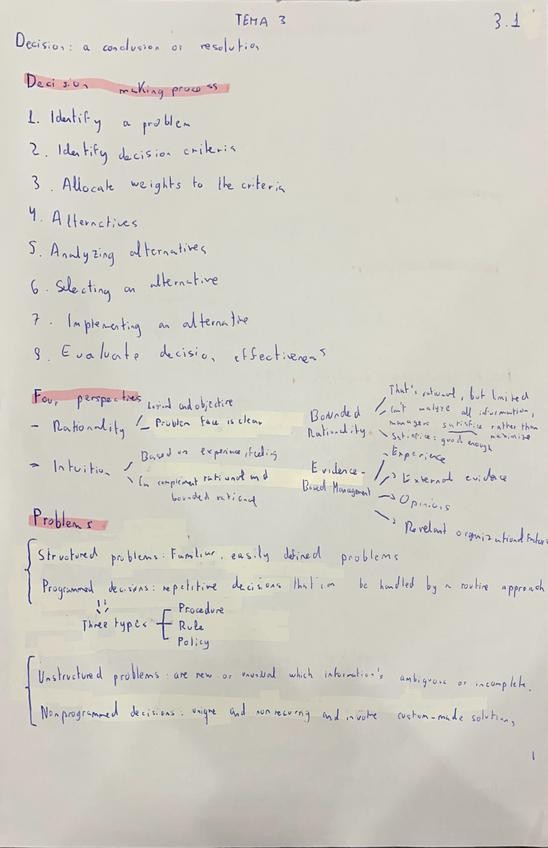 TEMA 3
3.1
Decision: a conclusion or resolution
Decision making process
1. Identify a problem
2. Identify decision criteria
3. Allocate weights to the criteria
4. Alternatives
5. Analyzing alternatives
6. Selecting an alternative
7. Implementing an alternative
8. Evaluate decision effectiveness
Four perspectives
- Rationality
Logical and objective
Problem face is clear
- Intuition
Based on experience, feeling
Can complement rational and
bounded rational
Bounded
Rationality
That's rational, but limited
Can't analyze all information,
managers satisfice rather than
maximize
Satisfice: good enough
Evidence-
Based Management
Experience
External evidence
Opinions
Relevant organizational factors
Problems
Structured problems: Familiar, easily defined problems
Programmed decisions: repetitive decisions that can be handled by a routine approach
Three types
Procedure
Rule
Policy
Unstructured problems: are new or unusual which information's ambiguous or incomplete.
Nonprogrammed decisions: unique and nonrecurring and involve custom-made solution,
1